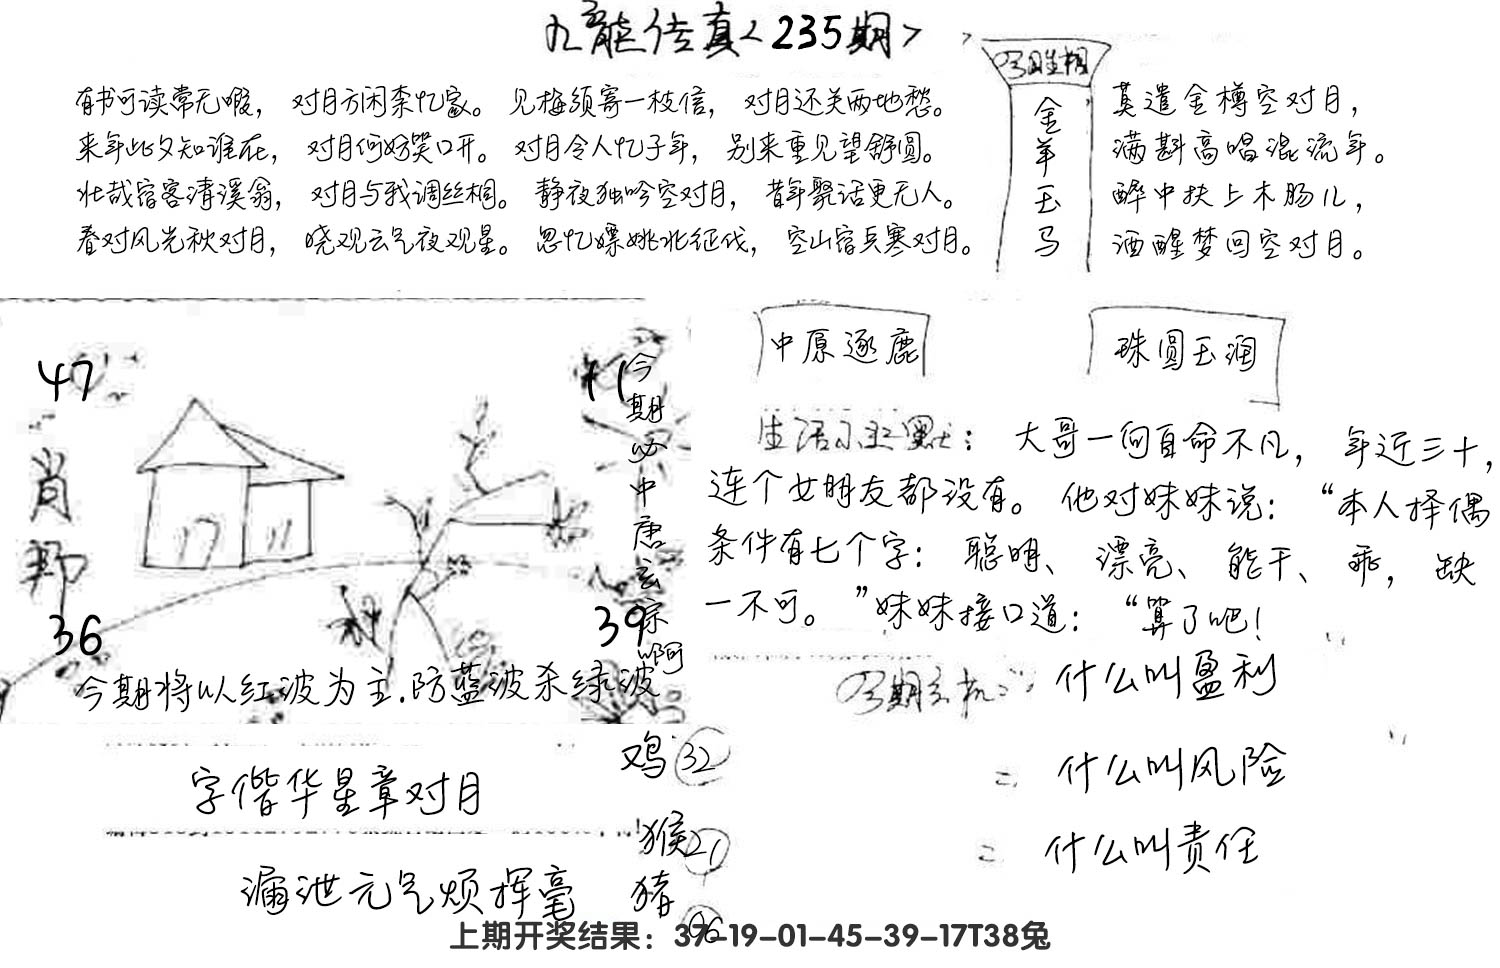 九龍传真<235期>
有书可读常无暇，对月方闲李忆家。见梅须寄一枝信，对月还关两地愁。
来年此夕知谁在，对月何妨笑口开。对月令人忆子年，别来重见望舒圆。
壮哉宿客清溪翁，对月与我调丝桐。静夜独吟空对月，昔年聚话更无人。
春对风光秋对月，晓观云气夜观星。思忆嫖姚北征伐，空山宿兵寒对月。
金羊玉马
莫遣金樽空对月，
满斟高唱混流年。
醉中扶上木肠儿，
酒醒梦回空对月。
47
11
肖
36
39
今期必中唐玄宗啊
今期将以红波为主.防蓝波杀绿波
中原逐鹿
珠圆玉润
生活小幽默：大哥一向自命不凡，年近三十，
连个女朋友都没有。他对妹妹说：“本人择偶
条件有七个字：聪明、漂亮、能干、乖，缺
一不可。”妹妹接口道：“算了吧！
今期玄机
什么叫盈利
二 什么叫风险
三 什么叫责任
字偕华星章对月
漏泄元气烦挥毫
鸡 32
猴 21
猪 06
上期开奖结果：37-19-01-45-39-17T38兔